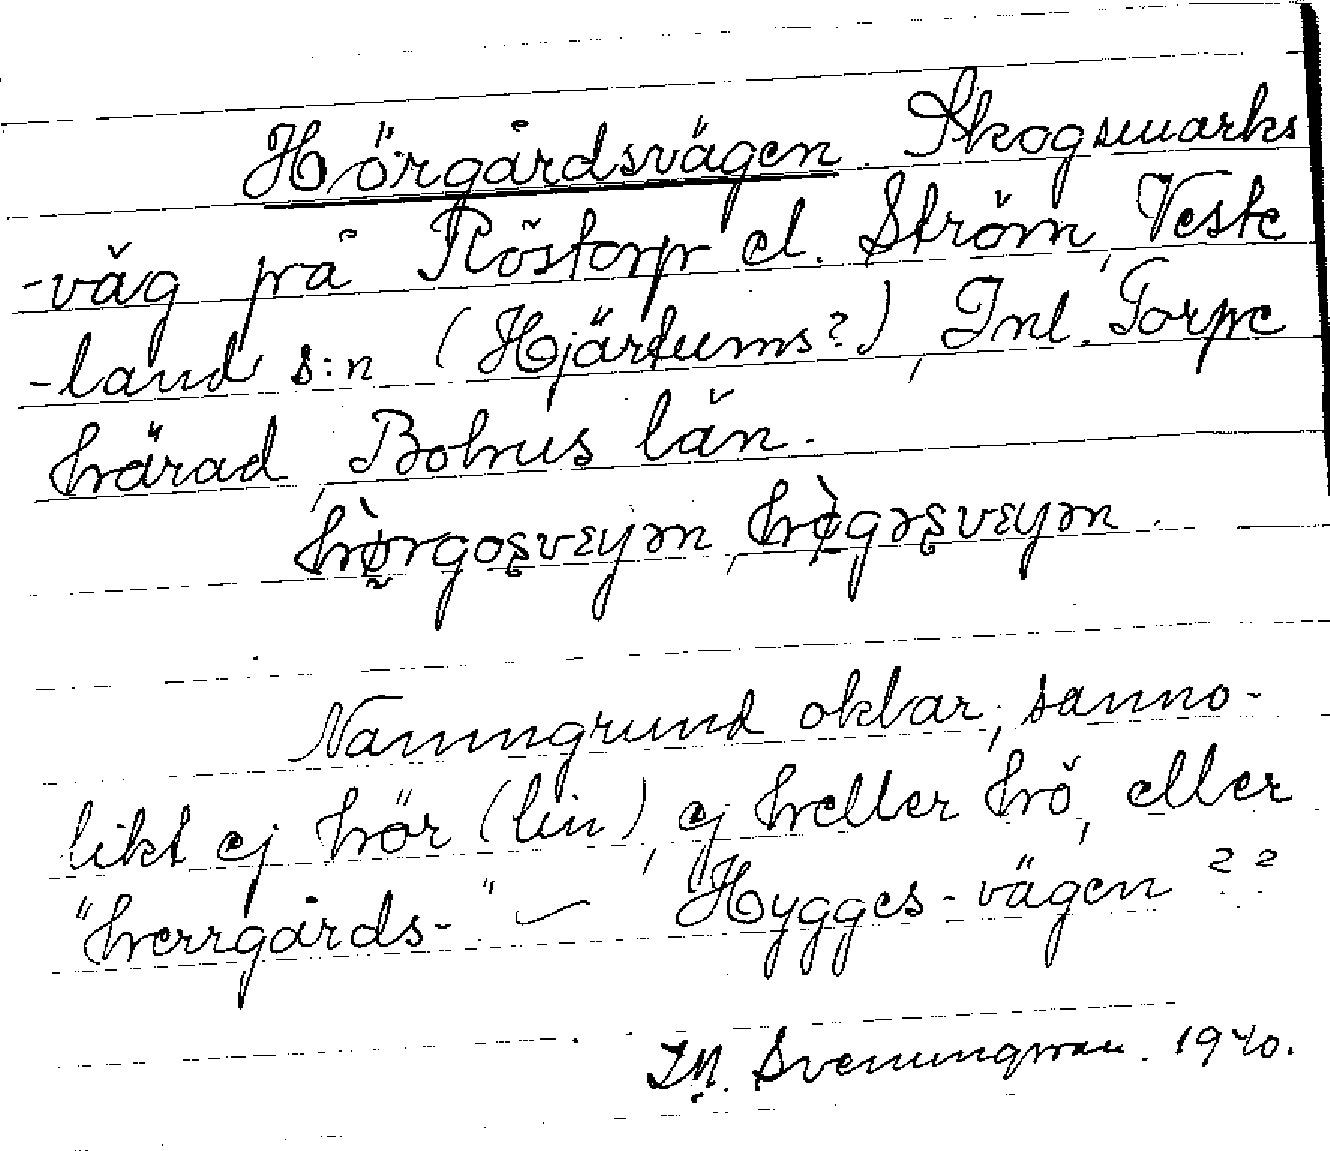 Hörgårdsvägen. Skogsmarks
-väg på Röstorp el. Ström, Veste
-land s:n (Hjärtums?), Inl. Torpe
härad, Bohus län.
Namngrund oklar, sanno-
likt ej hör (lin), ej heller hö, eller
"herrgårds-" – "Hygges-vägen ??
1940.